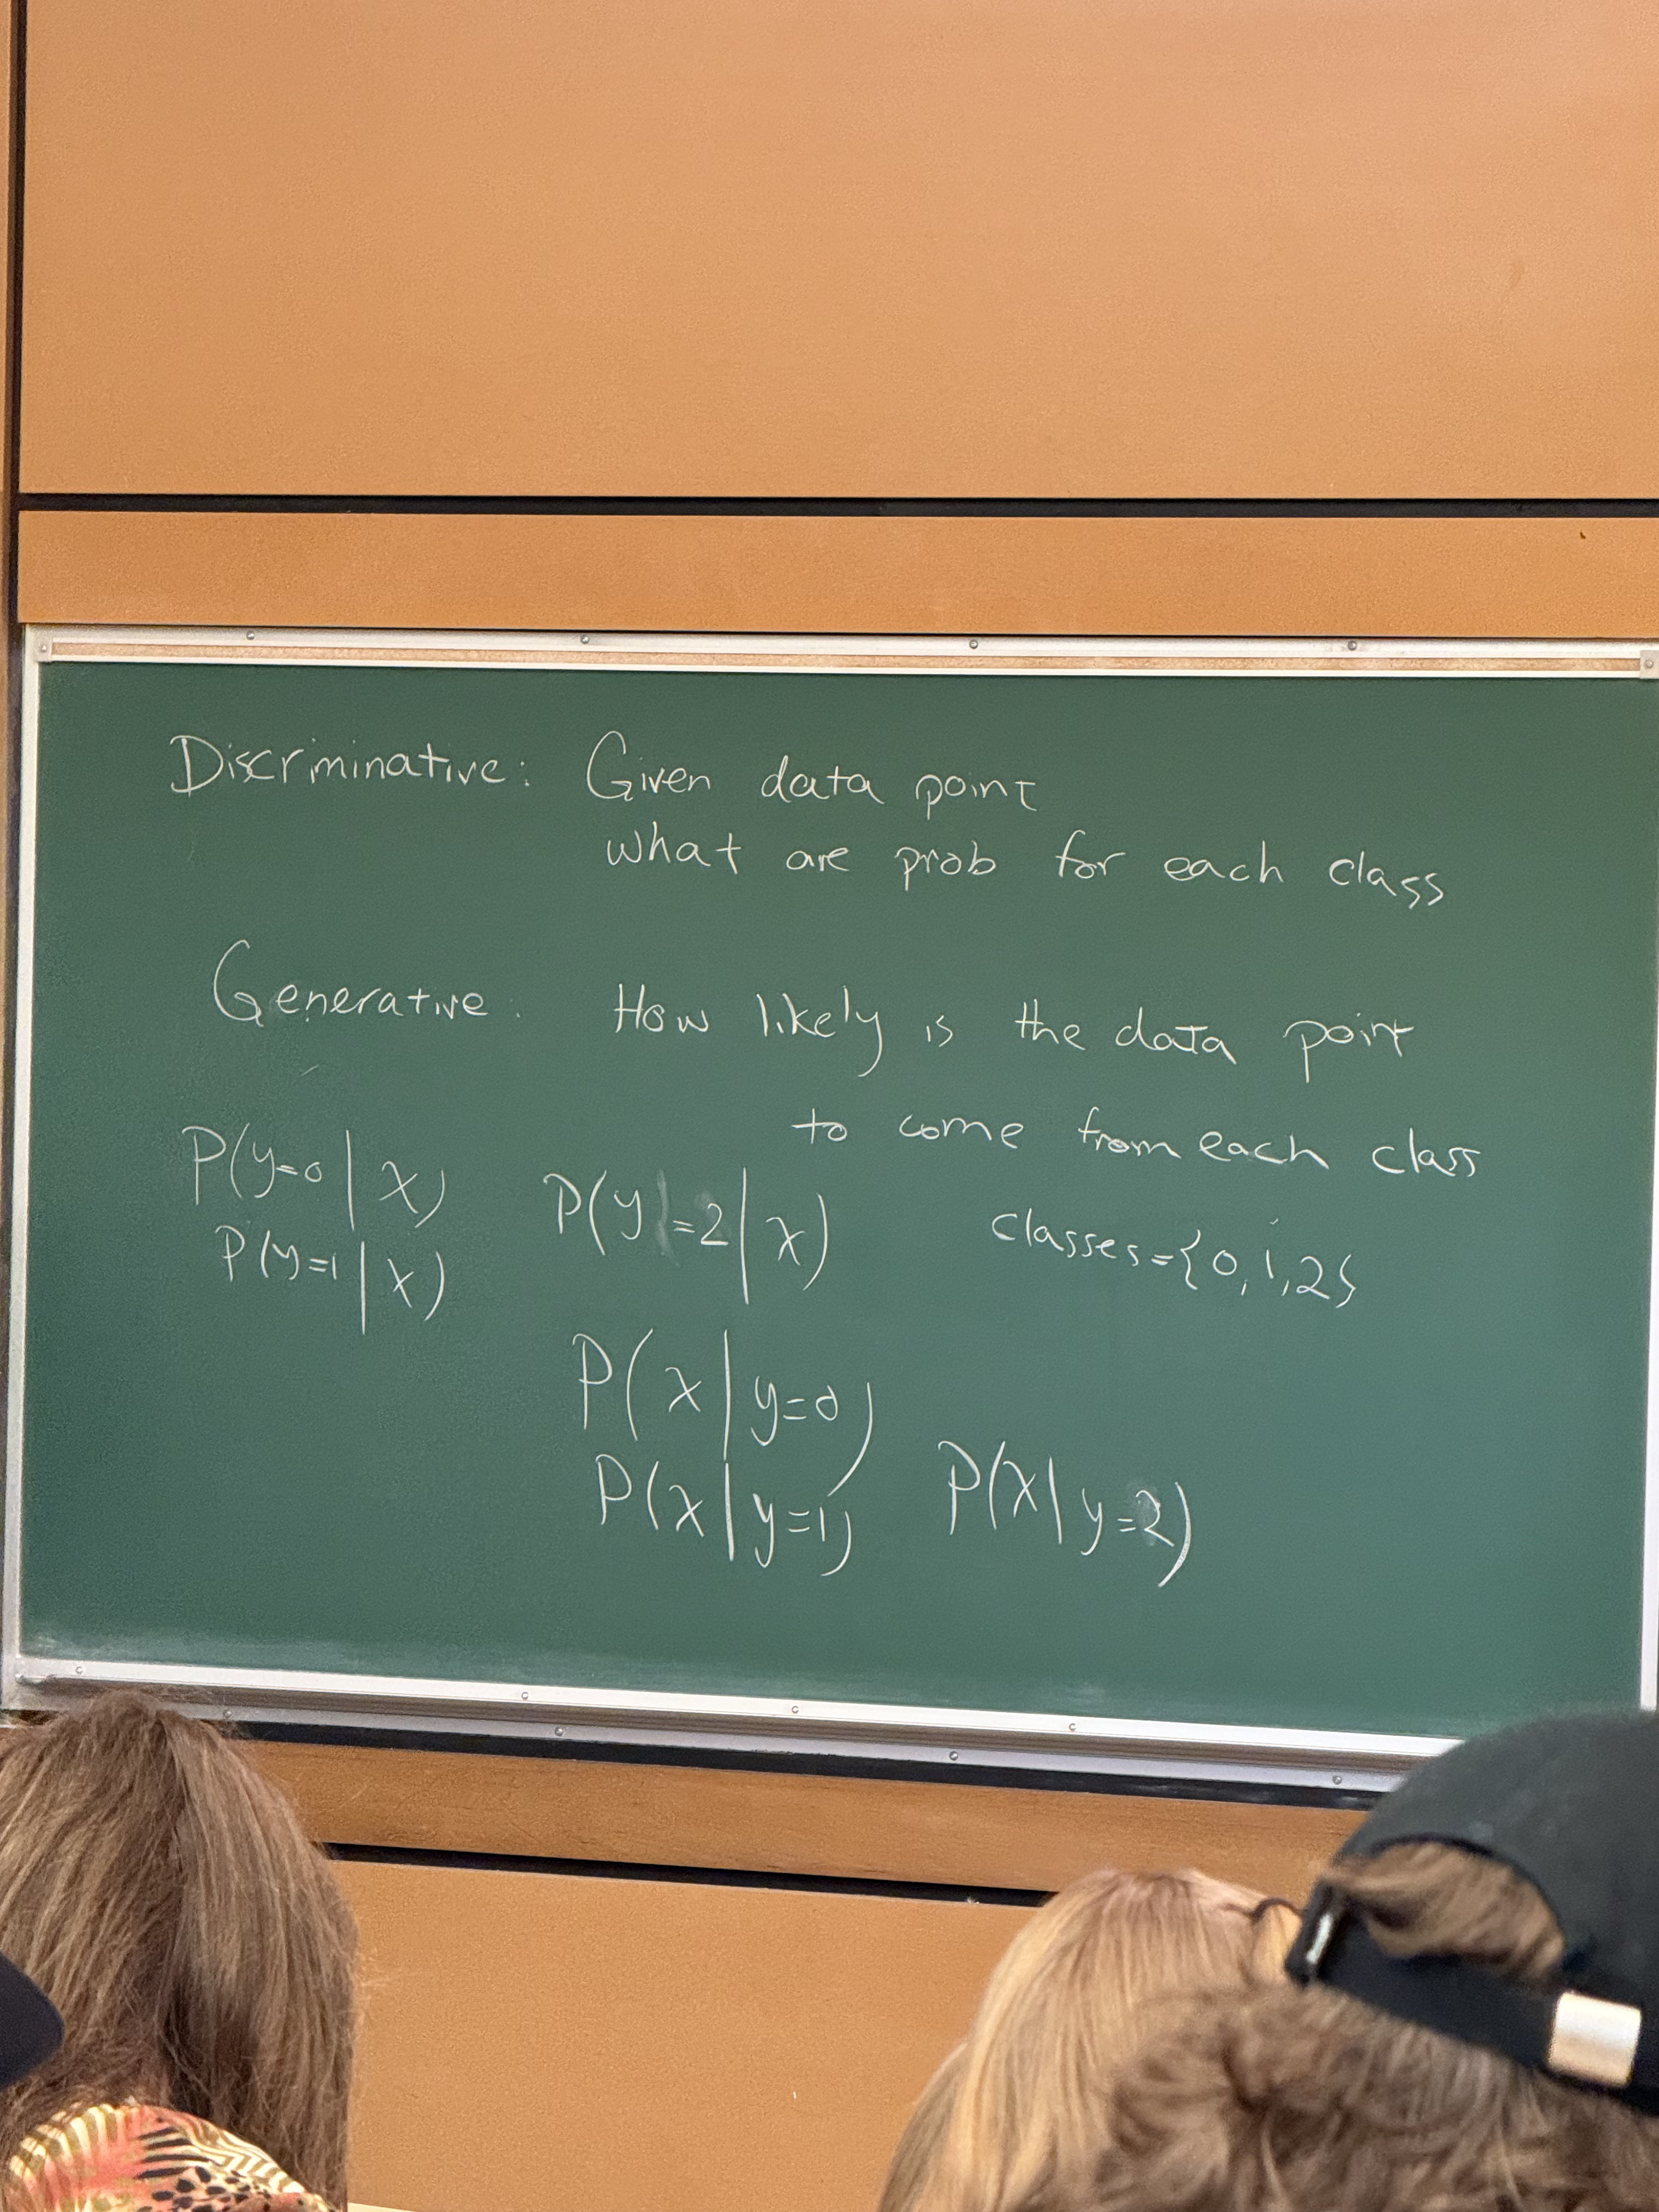 Discriminative: Given data point
what are prob for each class
Generative: How likely is the data point
to come from each class
P(y=0|x)
P(y=1|x)
P(y=2|x)
classes={0,1,2}
P(x|y=0)
P(x|y=1)
P(x|y=2)